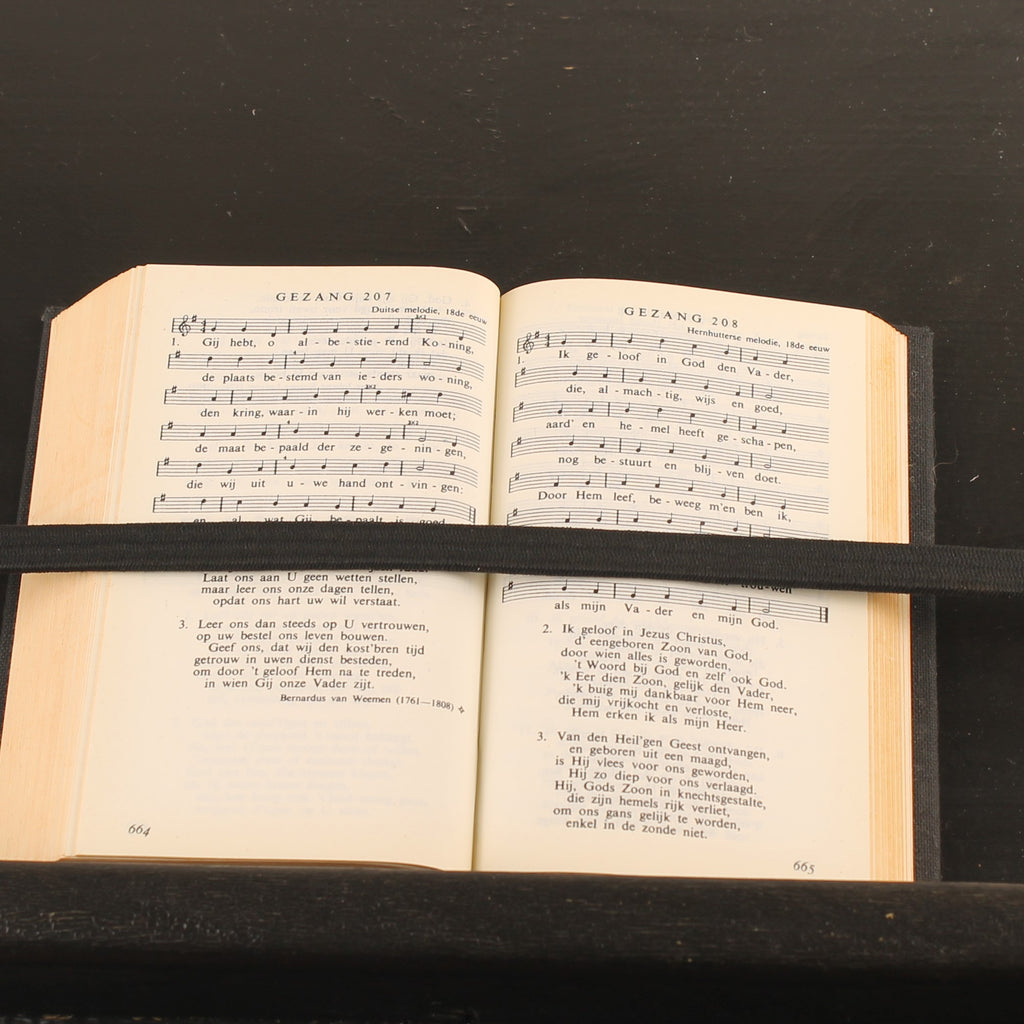 GEZANG 207
Duitse melodie, 18de eeuw
1. Gij hebt, o al-be-stie-rend Ko-ning,
de plaats be-stemd van ie-ders wo-ning,
den kring, waar-in hij wer-ken moet;
de maat be-paald der ze-ge-nin-gen,
die wij uit u-we hand ont-vin-gen;
en al, wat Gij be-paalt is goed
Laat ons aan U geen wetten stellen,
maar leer ons onze dagen tellen,
opdat ons hart uw wil verstaat.
3. Leer ons dan steeds op U vertrouwen,
op uw bestel ons leven bouwen.
Geef ons, dat wij den kost'bren tijd
getrouw in uwen dienst besteden,
om door 't geloof Hem na te treden,
in wien Gij onze Vader zijt.
Bernardus van Weemen (1761—1808)
664
GEZANG 208
Hernhutterse melodie, 18de eeuw
1. Ik ge-loof in God den Va-der,
die, al-mach-tig, wijs en goed,
aard' en he-mel heeft ge-scha-pen,
nog be-stuurt en blij-ven doet.
Door Hem leef, be-weeg m'en ben ik,
trou-wen
als mijn Va-der en mijn God.
2. Ik geloof in Jezus Christus,
d' eengeboren Zoon van God,
door wien alles is geworden,
't Woord bij God en zelf ook God.
'k Eer dien Zoon, gelijk den Vader,
'k buig mij dankbaar voor Hem neer,
die mij vrijkocht en verloste,
Hem erken ik als mijn Heer.
3. Van den Heil'gen Geest ontvangen,
en geboren uit een maagd,
is Hij vlees voor ons geworden,
Hij zo diep voor ons verlaagd.
Hij, Gods Zoon in knechtsgestalte,
die zijn hemels rijk verliet,
om ons gans gelijk te worden,
enkel in de zonde niet.
665